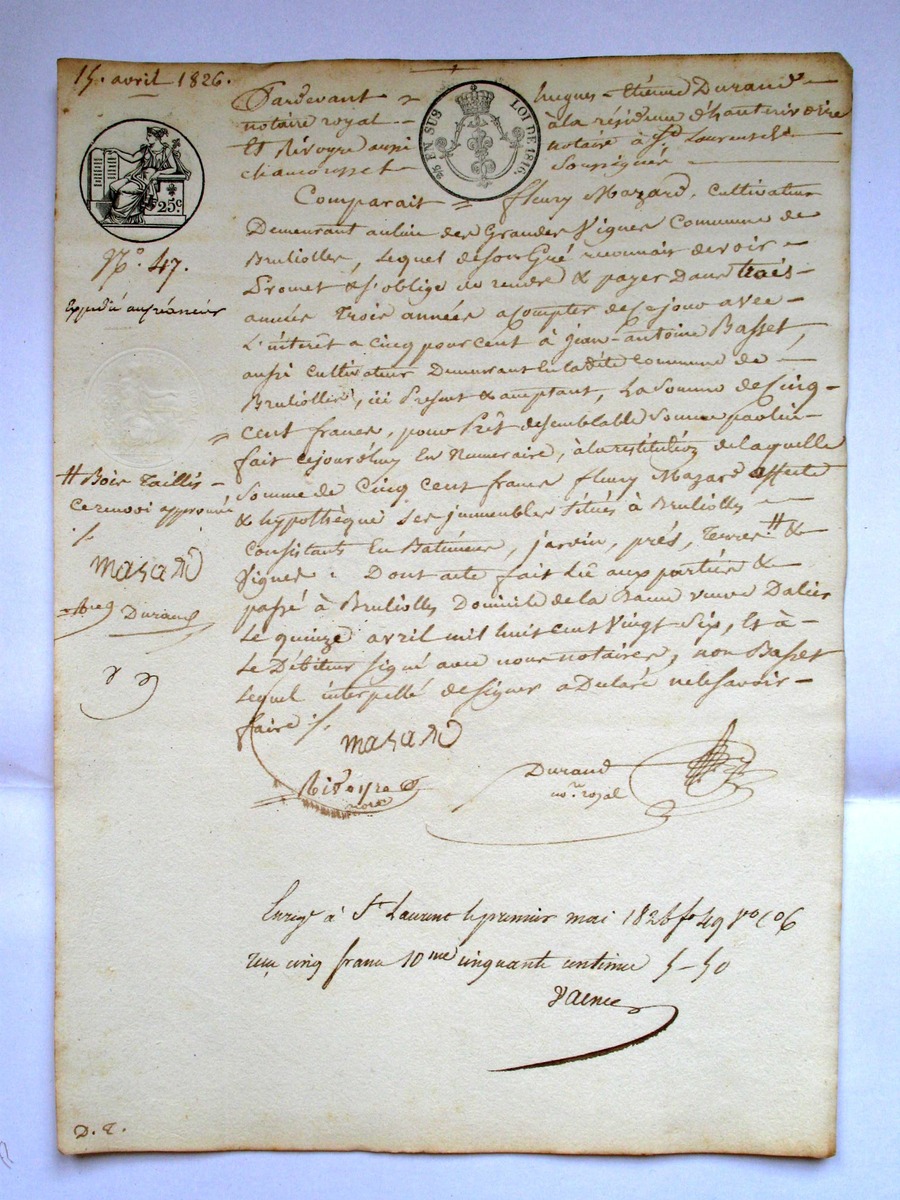 15. avril 1826.
Pardevant = hugues-Etienne Durand
notaire royal à la résidence d'hauterivoire
Et Rivoyre aussi notaire à St Laurent de
chamousset Soussignés
EN SUS LOI DE 1816.
25c.
N.º 47.
Expédié au créancier
Comparait = fleury Mazard, cultivateur
Demeurant au lieu des Grandes Vignes Commune de
Brulliolles, lequel de son Gré reconnait devoir
Promet & s'oblige de rendre & payer Dans trois
années Trois années a compter de ce jour avec
L'intérêt a cinq pour cent à jean-antoine Basset,
aussi cultivateur Demeurant en la dite Commune de
Brulliolles, ici Présent & acceptant, La Somme de Cinq
= Cent francs, pour Prêt de semblable Somme par lui
fait cejourd'huy En Numéraire, à la restitution de laquelle
Somme de Cinq Cent francs fleury Mazard affecte
& hypothèque Ses immeubles Situés à Brulliolles
Consistants En Batiments, jardin, prés, Terres # &
Vignes : Dont acte fait Lû aux parties &
passé à Brulliolles Domicile de la Dame veuve Dalier
Le quinze avril mil huit cent Vingt Six, Et à
Le Débiteur Signé avec nous notaires, non Basset
Lequel interpellé de Signer a Déclaré ne le Savoir
faire ./.
# Bois Taillis
Ce renvoi approuvé
./.
maSaRD
Durand
maSaRD
Rivoyre
nore
Durand
no.re royal
Enregé à St Laurent le premier mai 1826 fo 49 vo co 6
reçu cinq francs 10me cinquante centimes 5-50
D. T.